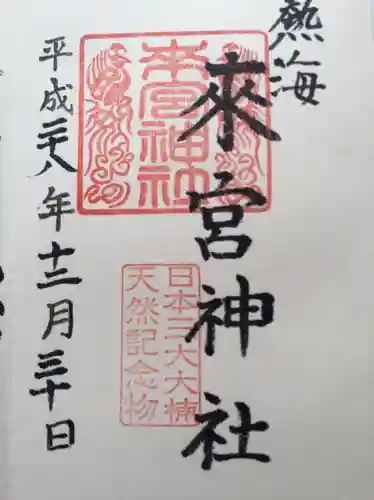 熱海
來宮神社
日本三大大楠
天然記念物
來宮神社
平成二十八年十二月三十日